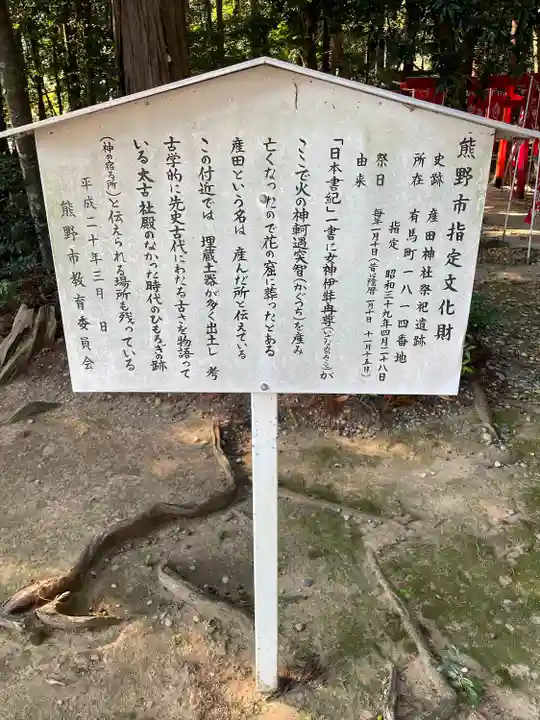 熊野市指定文化財
史跡 産田神社祭祀遺跡
所在 有馬町一八一四番地
指定 昭和三十九年四月二十八日
祭日 毎年一月十日(昔は陰暦一月十日 十一月十五日)
由来
「日本書紀」一書に女神伊弉冉尊(いざなみのみこと)が
ここで火の神軻遇突智(かぐつち)を産み
亡くなったので花の窟に葬ったとある
産田という名は 産んだ所と伝えている
この付近では 埋蔵土器が多く出土し 考
古学的に先史古代にわたる古さを物語って
いる 太古 社殿のなかった時代のひもろぎの跡
(神の宿る所)と伝えられる場所も残っている
平成二十年三月 日
熊野市教育委員会